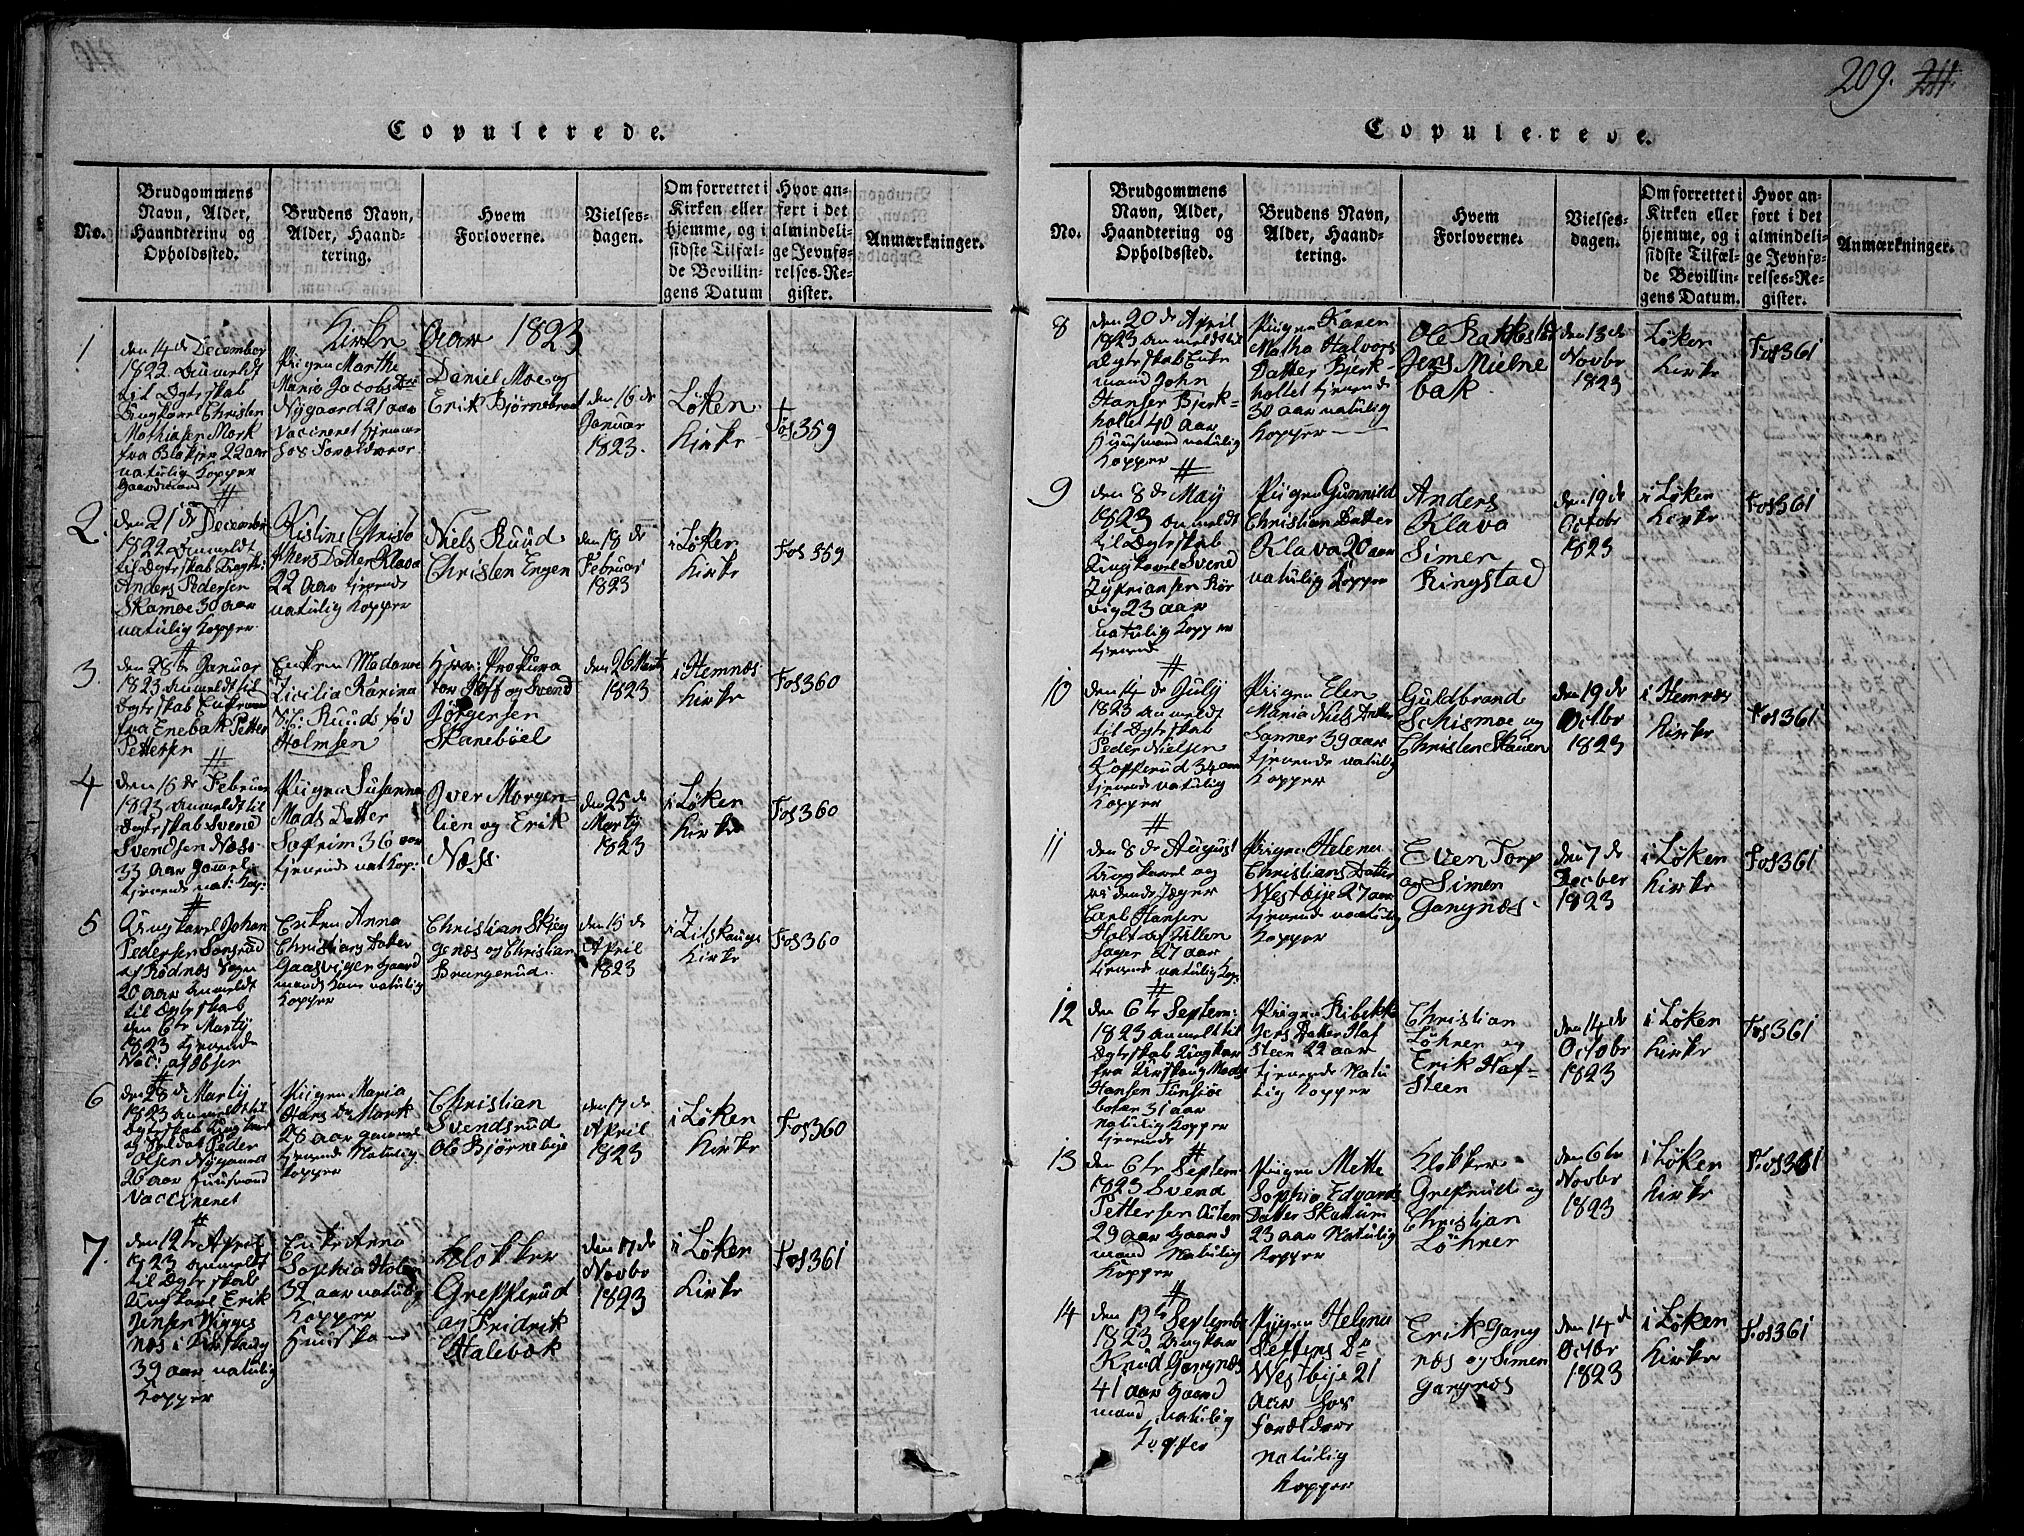 209. 211.
Copulerede.
No.
Brudgommens
Navn, Alder,
Haandtering og
Opholdssted.
Brudens Navn,
Alder, Haand-
tering.
Hvem
Forloverne.
Vielses-
dagen.
Om forrettet i
Kirken eller
hjemme, og i
sidste Tilfæl-
de Bevillin-
gens Datum
Hvor an-
ført i det
almindeli-
ge Jevnfø-
relses-Re-
gister.
Anmærkninger.
Kirke Aar 1823
1
den 14de December
1822 Anmeldt
til Ægteskab
Ungkarl Christen
Mathiasen Mork
fra Blakjer 22 aar
natulig Kopper
Gaardmand
Pigen Marthe
Maria Jacobs Dr
Nÿgaard 21 aar
Vaccineret
hos Forældrene
Daniel Moe og
Erik Bjørnebraat
den 16 de
Januar
1823.
Løken
Kirke
Fos 359
2.
den 21 de December
1822 Anmeldt
til Ægteskab Ungk:
Anders Pedersen
Skamoe 30 aar
natulig Kopper
Kistine Christo
phers Datter Klava
22 Aar tjenende
natulig Kopper
Niels Ruud
Christen Engen
den 18 de
Februar
1823
i Løken
Kirke
Fos 359
3.
den 28 de Januar
1823 Anmeldt til
Ægteskab Enkemand
fra Enebak Petter
Pettersen
Enken Madame
Cicilia Karina
Ruuds fød
Holmsen
Hrr: Prokura
tor Hoff og Svend
Jørgensen
Skanebøel
den 26 Marti
1823
i Hemnæs
Kirke
Fos 360
4
den 16 de Februar
1823 Anmeldt til
Ægteskab Svend
Svendsen Næss
33 Aar
tjenende nat: Kop:
Pigen Susanna
Mads Datter
Sofrim 36 aar
tjenende nat Kop:
Iver Morgen-
lien og Erik
Næss.
den 25 de
Martÿ
1823
i Løken
Kirke
Fos 360
5
Ungkarl Johan
Pedersen
af Rødnæs Sogn
20 aar Anmeldt
til Ægteskab
den 6te Martÿ
1823 tjenende
Enken Anna
Christians Datter
Gaasvigen Gaard
mands Kone natulig
Kopper
Christian Skjeg
genæs og Christian
Brangerud.
den 15 de
April
1823
i
Kirke
Fos 360
6
den 28 de Martÿ
1823 Anmeldt til
Ægteskab Ungkarl
og Soldat Peder
Olsen Nÿgaard
26 aar Huusmand
Vaccineret
Pigen Maria
Hans Dr Mork
28 aar gammel
tjenende Natulig
Kopper
Christian
Svendsrud
Ole Bjørnebÿe
den 17 de
April
1823
i Løken
Kirke
Fos 360
7.
den 12te April
1823 Anmeldt
til Ægteskab
Ungkarl Erik
Jensen
næs i
39 aar natulig
Kopper
Enke Anna
Sophia
32 aar natulig
Kopper
Klokker
Grepperud
og Fridrik
Halebæk
den 17 de
Novbr
1823
i Løken
Kirke
Fos 361
Copulerede.
No.
Brudgommens
Navn, Alder,
Haandtering og
Opholdssted.
Brudens Navn,
Alder, Haand-
tering.
Hvem
Forloverne.
Vielses-
dagen.
Om forrettet i
Kirken eller
hjemme, og i
sidste Tilfæl-
de Bevillin-
gens Datum.
Hvor an-
ført i det
almindeli-
ge Jevnfø-
relses-Re-
gister.
Anmærkninger.
8
den 20 de April
1823 Anmeldt til
Ægteskab Enke
mand John
Hansen Bjerk-
holtet 40 aar
Huusmand natulig
Kopper
Pigen Karen
Matha Halvors
Datter Bjerk-
holtet tjenende
30 aar natulig
Kopper
Ole Rakkestad
Jens Mielne
bak
den 13 de
Novbr
1823
Løken
Kirke
Fos 361
9
den 8 de Maÿ
1823 Anmeldt
til Ægteskab
Ungkarl Svend
Zÿprianson Kør
vig 23 aar
natulig Kopper
tjenende
Pigen Gunnild
Christian Datter
Klava 20 aar
natulig Kopper
Anders
Klava
Simen
Ringstad
den 19 de
Octobr
1823
i Løken
Kirke
Fos 361
10
den 14 de Julÿ
1823 Anmeldt
til Ægteskab
Peder Nielsen
Kopperud 34 aar
tjenende natulig
Kopper
Pigen Elen
Maria Niels Datter
Sanner 39 aar
tjenende natulig
Kopper
Guldbrand
Schismoe og
Christen Skauen
den 19 de
Octbr
1823
i Hemnæs
Kirke
Fos 361
11
den 8 de August
Ungkarl og
Jæger
Carl Hansen
Holt af
Jæger 27 aar
tjenende natulig Kop:
Pigen Helena
Christians Datter
Westbÿe 27 aar
tjenende natulig
Kopper
Even Torp
og Simen
Gangnæs
den 7 de
Decber
1823
i Løken
Kirke
Fos 361
12
den 6te Septem:
1823 Anmeldt til
Ægteskab Ungkar
fra Urskoug Mads
Hansen Tunsiøe
botten 31 aar
Natulig Kopper
tjenende
Pigen Ribekka
Jens Datter Haf
steen 22 aar
tjenende Natu
lig Kopper
Christian
Løhren og
Erik Haf-
steen
den 14 de
Octobr
1823
i Løken
Kirke
Fos 361
13
den 6te Septem-
1823 Svend
Pettersen Auten
29 aar Gaard
mand Natulig
Kopper
Pigen Mette
Sophia Edvard
Datter Skattum
23 aar Natulig
Kopper
Klokker
Greperud og
Christian
Løhren
den 6te
Novbr
1823
i Løken
Kirke
Fos 361
14
den 12te Septembr
1823 Ungkar
Knud Gangnæs
41 aar Gaard
mand natulig
Kopper
Pigen Helena
Steffens Dr
Westbÿe 21
aar hos
Forældrene
natulig
Kopper
Erik Gang
næs og Simen
Gangnæs
den 14 de
Octbr
1823
i Løken
Kirke
Fos 361